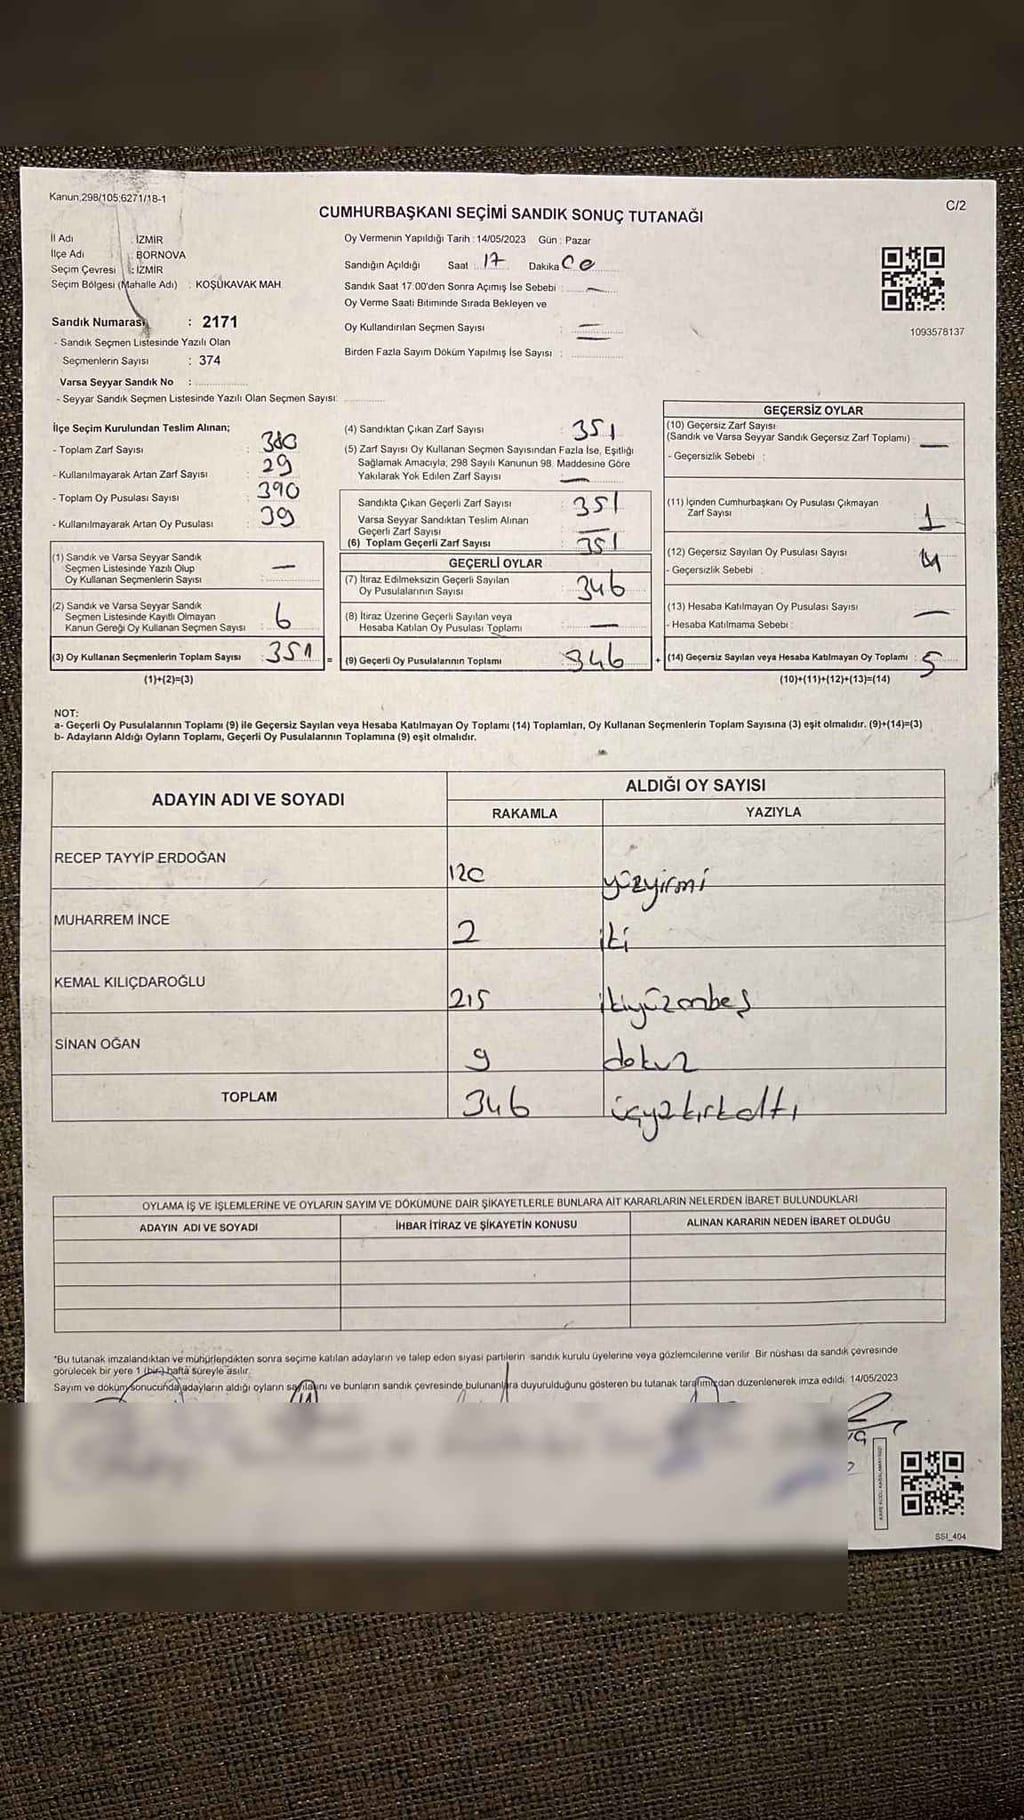 Kanun;298/105;6271/18-1
C/2
CUMHURBAŞKANI SEÇİMİ SANDIK SONUÇ TUTANAĞI
İl Adı : İZMİR
İlçe Adı : BORNOVA
Seçim Çevresi : İZMİR
Seçim Bölgesi (Mahalle Adı) : KOŞUKAVAK MAH.
Oy Vermenin Yapıldığı Tarih : 14/05/2023 Gün : Pazar
Sandığın Açıldığı Saat : 17 Dakika 00
Sandık Saat 17:00'den Sonra Açımış İse Sebebi : —
Oy Verme Saati Bitiminde Sırada Bekleyen ve
Oy Kullandırılan Seçmen Sayısı : —
Birden Fazla Sayım Döküm Yapılmış İse Sayısı :
1093578137
Sandık Numarası : 2171
- Sandık Seçmen Listesinde Yazılı Olan
Seçmenlerin Sayısı : 374
Varsa Seyyar Sandık No :
- Seyyar Sandık Seçmen Listesinde Yazılı Olan Seçmen Sayısı:
İlçe Seçim Kurulundan Teslim Alınan;
- Toplam Zarf Sayısı : 380
- Kullanılmayarak Artan Zarf Sayısı : 29
- Toplam Oy Pusulası Sayısı : 390
- Kullanılmayarak Artan Oy Pusulası : 39
(1) Sandık ve Varsa Seyyar Sandık
Seçmen Listesinde Yazılı Olup
Oy Kullanan Seçmenlerin Sayısı : —
(2) Sandık ve Varsa Seyyar Sandık
Seçmen Listesinde Kayıtlı Olmayan
Kanun Gereği Oy Kullanan Seçmen Sayısı : 6
(3) Oy Kullanan Seçmenlerin Toplam Sayısı : 351 =
(1)+(2)=(3)
(4) Sandıktan Çıkan Zarf Sayısı : 351
(5) Zarf Sayısı Oy Kullanan Seçmen Sayısından Fazla İse, Eşitliği
Sağlamak Amacıyla; 298 Sayılı Kanunun 98. Maddesine Göre
Yakılarak Yok Edilen Zarf Sayısı : —
Sandıkta Çıkan Geçerli Zarf Sayısı : 351
Varsa Seyyar Sandıktan Teslim Alınan
Geçerli Zarf Sayısı : —
(6) Toplam Geçerli Zarf Sayısı : 351
GEÇERLİ OYLAR
(7) İtiraz Edilmeksizin Geçerli Sayılan
Oy Pusulalarının Sayısı : 346
(8) İtiraz Üzerine Geçerli Sayılan veya
Hesaba Katılan Oy Pusulası Toplamı : —
(9) Geçerli Oy Pusulalarının Toplamı : 346 +
GEÇERSİZ OYLAR
(10) Geçersiz Zarf Sayısı
(Sandık ve Varsa Seyyar Sandık Geçersiz Zarf Toplamı) : —
- Geçersizlik Sebebi :
(11) İçinden Cumhurbaşkanı Oy Pusulası Çıkmayan
Zarf Sayısı : 1
(12) Geçersiz Sayılan Oy Pusulası Sayısı : 4
- Geçersizlik Sebebi :
(13) Hesaba Katılmayan Oy Pusulası Sayısı : —
- Hesaba Katılmama Sebebi :
(14) Geçersiz Sayılan veya Hesaba Katılmayan Oy Toplamı : 5
(10)+(11)+(12)+(13)=(14)
NOT:
a- Geçerli Oy Pusulalarının Toplamı (9) ile Geçersiz Sayılan veya Hesaba Katılmayan Oy Toplamı (14) Toplamları, Oy Kullanan Seçmenlerin Toplam Sayısına (3) eşit olmalıdır. (9)+(14)=(3)
b- Adayların Aldığı Oyların Toplamı, Geçerli Oy Pusulalarının Toplamına (9) eşit olmalıdır.
ADAYIN ADI VE SOYADI ALDIĞI OY SAYISI
RAKAMLA YAZIYLA
RECEP TAYYİP ERDOĞAN 120 yüzyirmi
MUHARREM İNCE 2 iki
KEMAL KILIÇDAROĞLU 215 ikiyüzonbeş
SİNAN OĞAN 9 dokuz
TOPLAM 346 üçyüzkırkaltı
OYLAMA İŞ VE İŞLEMLERİNE VE OYLARIN SAYIM VE DÖKÜMÜNE DAİR ŞİKAYETLERLE BUNLARA AİT KARARLARIN NELERDEN İBARET BULUNDUKLARI
ADAYIN ADI VE SOYADI İHBAR İTİRAZ VE ŞİKAYETİN KONUSU ALINAN KARARIN NEDEN İBARET OLDUĞU
*Bu tutanak imzalandıktan ve mühürlendikten sonra seçime katılan adayların ve talep eden siyasi partilerin sandık kurulu üyelerine veya gözlemcilerine verilir. Bir nüshası da sandık çevresinde
görülecek bir yere 1 (bir) hafta süreyle asılır.
Sayım ve döküm sonucunda adayların aldığı oyların sayılarını ve bunların sandık çevresinde bulunanlara duyurulduğunu gösteren bu tutanak tarafımızdan düzenlenerek imza edildi. 14/05/2023
SSI_404